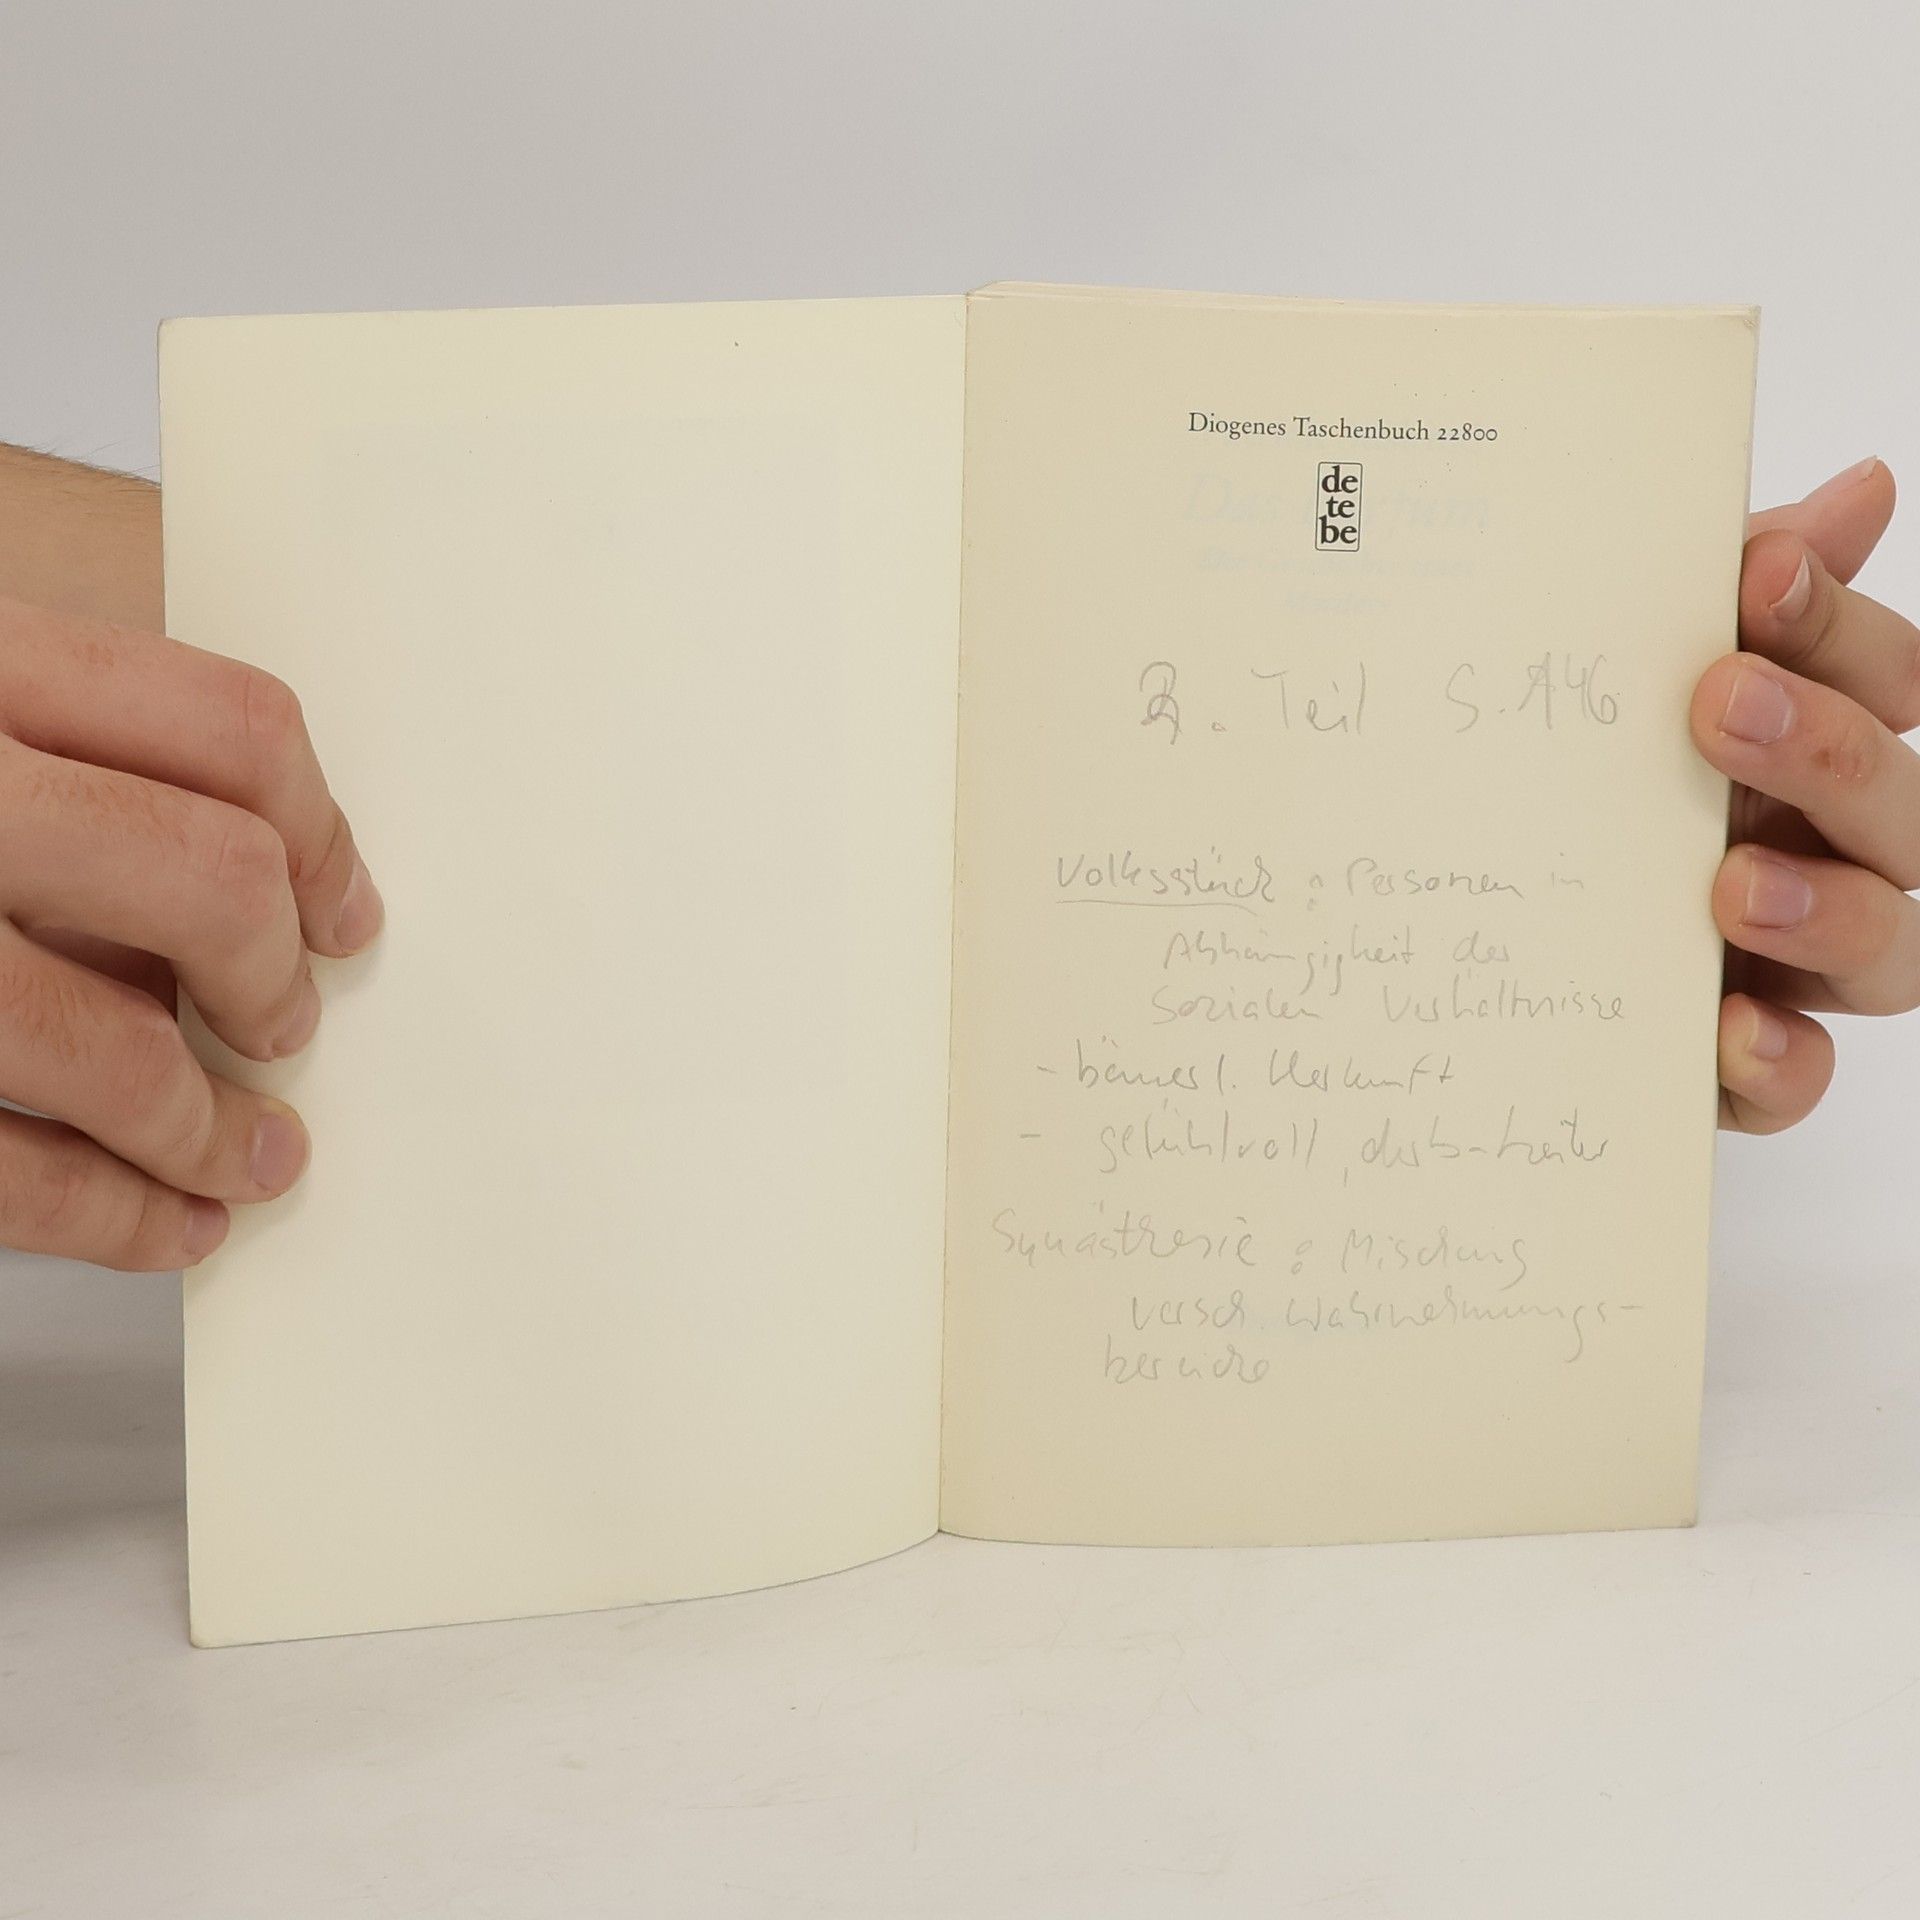 Diogenes Taschenbuch 22800
de
te
be
2. Teil S. 146
Volksstück : Personen in
Abhängigkeit der
sozialen Verhältnisse
- bäuerl. Herkunft
- gefühlvoll, derb-heiter
Synästhesie : Mischung
versch. Wahrnehmungs-
bereiche